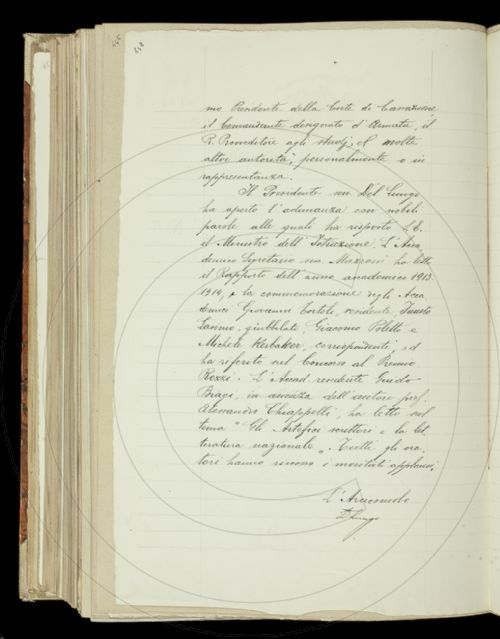 mo Presidente della Corte di Cassazione,
il Comandante designato d'Armata, il
R. Provveditore agli studj, e molte
altre autorità, personalmente o in
rappresentanza.
Il Presidente sen. Del Lungo
ha aperto l'adunanza con nobili
parole alle quali ha risposto S. E.
il Ministro dell'Istruzione. L'Acca-
demico Segretario sen. Mazzoni ha letto
il Rapporto dell'anno accademico 1913-
1914, e la commemorazione degli Acca-
demici Giovanni Tortoli, residente, Fausto
Lasinio, giubbilato, Giacomo Poletto e
Michele Kerbaker, corrispondenti, ed
ha riferito sul Concorso al Premio
Rezzi. L'Accad. residente Guido
Biagi, in assenza dell'autore prof.
Alessandro Chiappelli, ha letto sul
tema "Gli Artefici scrittori e la let-
teratura nazionale". Tutti gli ora-
tori hanno riscosso i meritati applausi.
L'Arciconsolo
D. Lungo